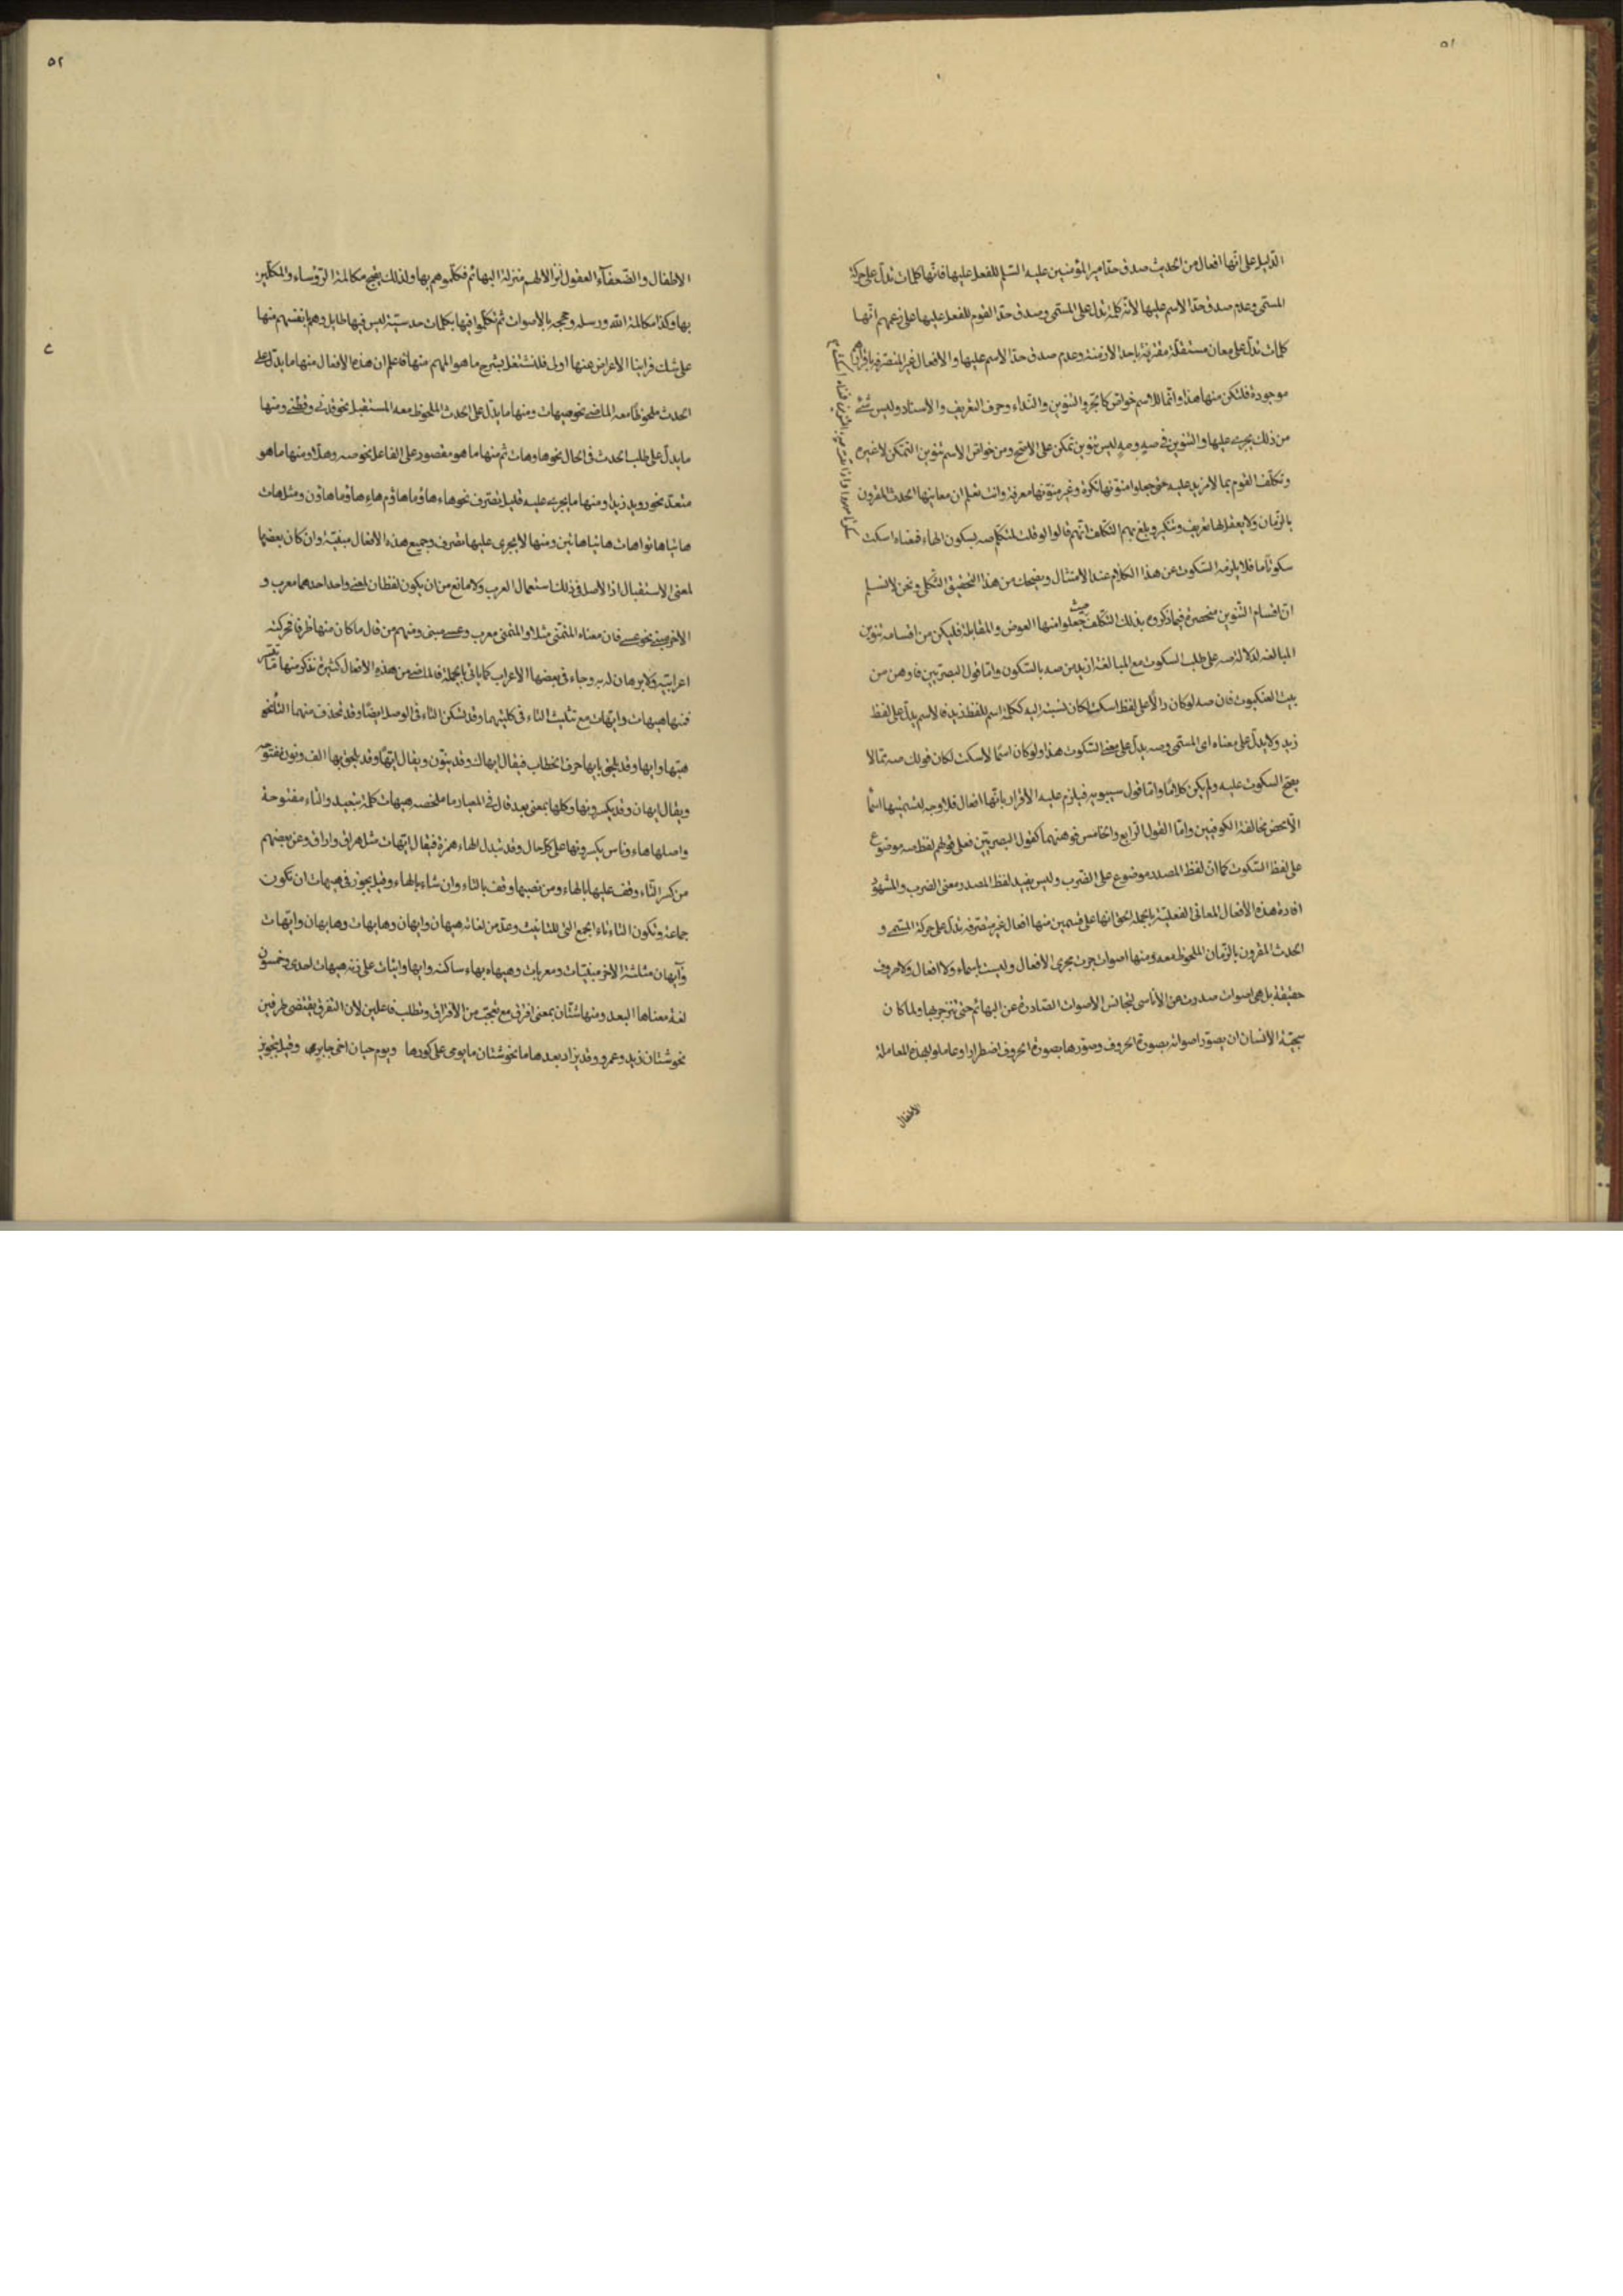 ٥١
الدليل على انها افعال من الحديث صدق حد امير المؤمنين عليه السلم للفعل عليها فانها كلمات تدل على حركة
المسمى وعدم صدق حد الاسم عليها لانه كلمة تدل على المسمى وصدق حد القوم للفعل عليها على زعمهم انها
كلمات تدل على معان مستقلة مقترنة باحد الازمنة وعدم صدق حد الاسم عليها والافعال الغير المتصرفة
موجودة فلتكن منها هذا وانما للاسم خواص كالجر والتنوين والنداء وحرف التعريف والاسناد وليس شئ
من ذلك يجرى عليها والتنوين في صهٍ ومهٍ ليس تنوين تمكن على الاصح ومن خواص الاسم تنوين التمكن لا غيره
وتكلف القوم بما لا مزيد عليه حتى جعلوا منونها نكرة وغير منونها معرفة وانت تعلم ان معانيها الحدث المقرون
بالزمان ولا يعقل لها تعريف وتنكير وبلغ بهم التكلف انهم قالوا لو قلت لمتكلم صه بسكون الهاء فمعناه اسكت
سكوتا ما فلا يلزمه السكوت عن هذا الكلام عند الامتثال ويضحك من هذا التحقيق الثكلى ونحن لا نسلم
ان اقسام التنوين منحصرة فيما ذكروه بذلك التكلف حيث جعلوا منها العوض والمقابلة فليكن من اقسامه تنوين
المبالغة لدلالة صه على طلب السكوت مع المبالغة ازيد من صه بالسكون واما قول البصريين فاوهن من
بيت العنكبوت فان صه لو كان دالًا على لفظ اسكت لكان نسبته اليه ككلمة اسم للفظ زيد فالاسم يدل على لفظ
زيد ولا يدل على معناه اى المسمى وصه يدل على معنى السكوت هذا ولو كان اسمًا لاسكت لكان قولك صه مما لا
يصح السكوت عليه ولم يكن كلامًا واما قول سيبويه فيلزم عليه الاقرار بانها افعال فلا وجه لتسميتها اسمًا
الا محض مخالفة الكوفيين واما القول الرابع والخامس فوهنهما كقول البصريين فعلى قولهم لفظ صه موضوع
على لفظ السكوت كما ان لفظ المصدر موضوع على الضرب وليس يفيد لفظ المصدر معنى الضرب والمشهود
افادة هذه الافعال المعانى الفعلية بالجملة الحق انها على قسمين منها افعال غير متصرفة تدل على حركة المسمى و
الحدث المقرون بالزمان الملحوظ معه ومنها اصوات جرت مجرى الافعال وليست باسماء ولا افعال ولا حروف
حقيقة بل هى اصوات صدرت من الاناسى لتجانس الاصوات الصادرة عن البهائم حتى تنزجر بها ولما كان
سجية الانسان ان يصور اصواته بصورة الحروف وصورها بصورة الحروف اضطرارا وعاملوا بهذه المعاملة
الاطفال
٥٢
الاطفال والضعفآء العقول نزالا لهم منزلة البهائم فكلموهم بها ولذلك يقبح مكالمة الرؤساء والمكابير
بها وكذا مكالمة الله ورسله وحججه بالاصوات ثم تكلموا فيها بكلمات حدسية ليس فيها طايل وهم بانفسهم منها
على شك فراينا الاعراض عنها اولى فلنشتغل بشرح ما هو المهم منها فاعلم ان هذه الافعال منها ما يدل على
الحدث ملحوظا معه الماضى نحو هيهات ومنها ما يدل على الحدث الملحوظ معه المستقبل نحو قدنى وقطنى ومنها
ما يدل على طلب الحدث فى الحال نحو ها وهات ثم منها ما هو مقصور على الفاعل نحو صه وهلا ومنها ما هو
متعد نحو رويد زيدا ومنها ما يجرى عليه قليل تصرف نحو هاء هاؤما هاؤم هاء هاؤما هاؤن ومثل هات
هاتيا هاتوا هات هاتيا هاتين ومنها لا يجرى عليها تصرف وجميع هذه الافعال مبنية وان كان بعضها
لمعنى الاستقبال اذ الاصل فى ذلك استعمال العرب ولا مانع من ان يكون لفظان لمعنى واحد احدهما معرب و
الاخر مبنى نحو عسى فان معناه المتمنى مثلا والمتمنى معرب وعسى مبنى ومنهم من قال ما كان منها ظرفا فحركته
اعرابية ولا برهان له به وجاء فى بعضها الاعراب كما ياتى بالجملة فالماضى من هذه الافعال كثيرة نذكر منها ما تيسر
فمنها هيهات وايهات مع تثليث التاء فى كليتهما وقد تسكن التاء فى الوصل ايضًا وقد تحذف منهما التاء نحو
هيها وايها وقد يلحق بايها حرف الخطاب فيقال ايهاك وقد ينون ويقال ايهًا وقد يلحق بها الف ونون مفتوحة
ويقال ايهان وقد يكسرونها وكلها بمعنى بعد قال فى المعيار ما ملخصه هيهات كلمة تبعيد والتاء مفتوحة
واصلها هاء وناس يكسرونها على كل حال وقد تبدل الهاء همزة فيقال ايهات مثل هراق واراق وعن بعضهم
من كسر التاء وقف عليها بالهاء ومن نصبها وقف بالتاء وان شاء بالهاء وقيل يجوز فى هيهات ان تكون
جماعة وتكون التاء تاء الجمع التى للتانيث وعد من لغاته هيهان وايهان وهايهات وهايهان وايهات
وآيهان مثلثة الاخر مبنيات ومعربات وهيهاه بهاء ساكنة وايها وايئات على زنة هيهات احدى وخمسون
لغة معناها البعد ومنها شتان بمعنى افترق مع تعجب من الافتراق وتطلب فاعلين لان التفرق يقتضى طرفين
نحو شتان زيد وعمرو وقد يزاد بعدها ما نحو شتان ما يومى على كورها ويوم حيان اخى جابرِ وقيل يجوز